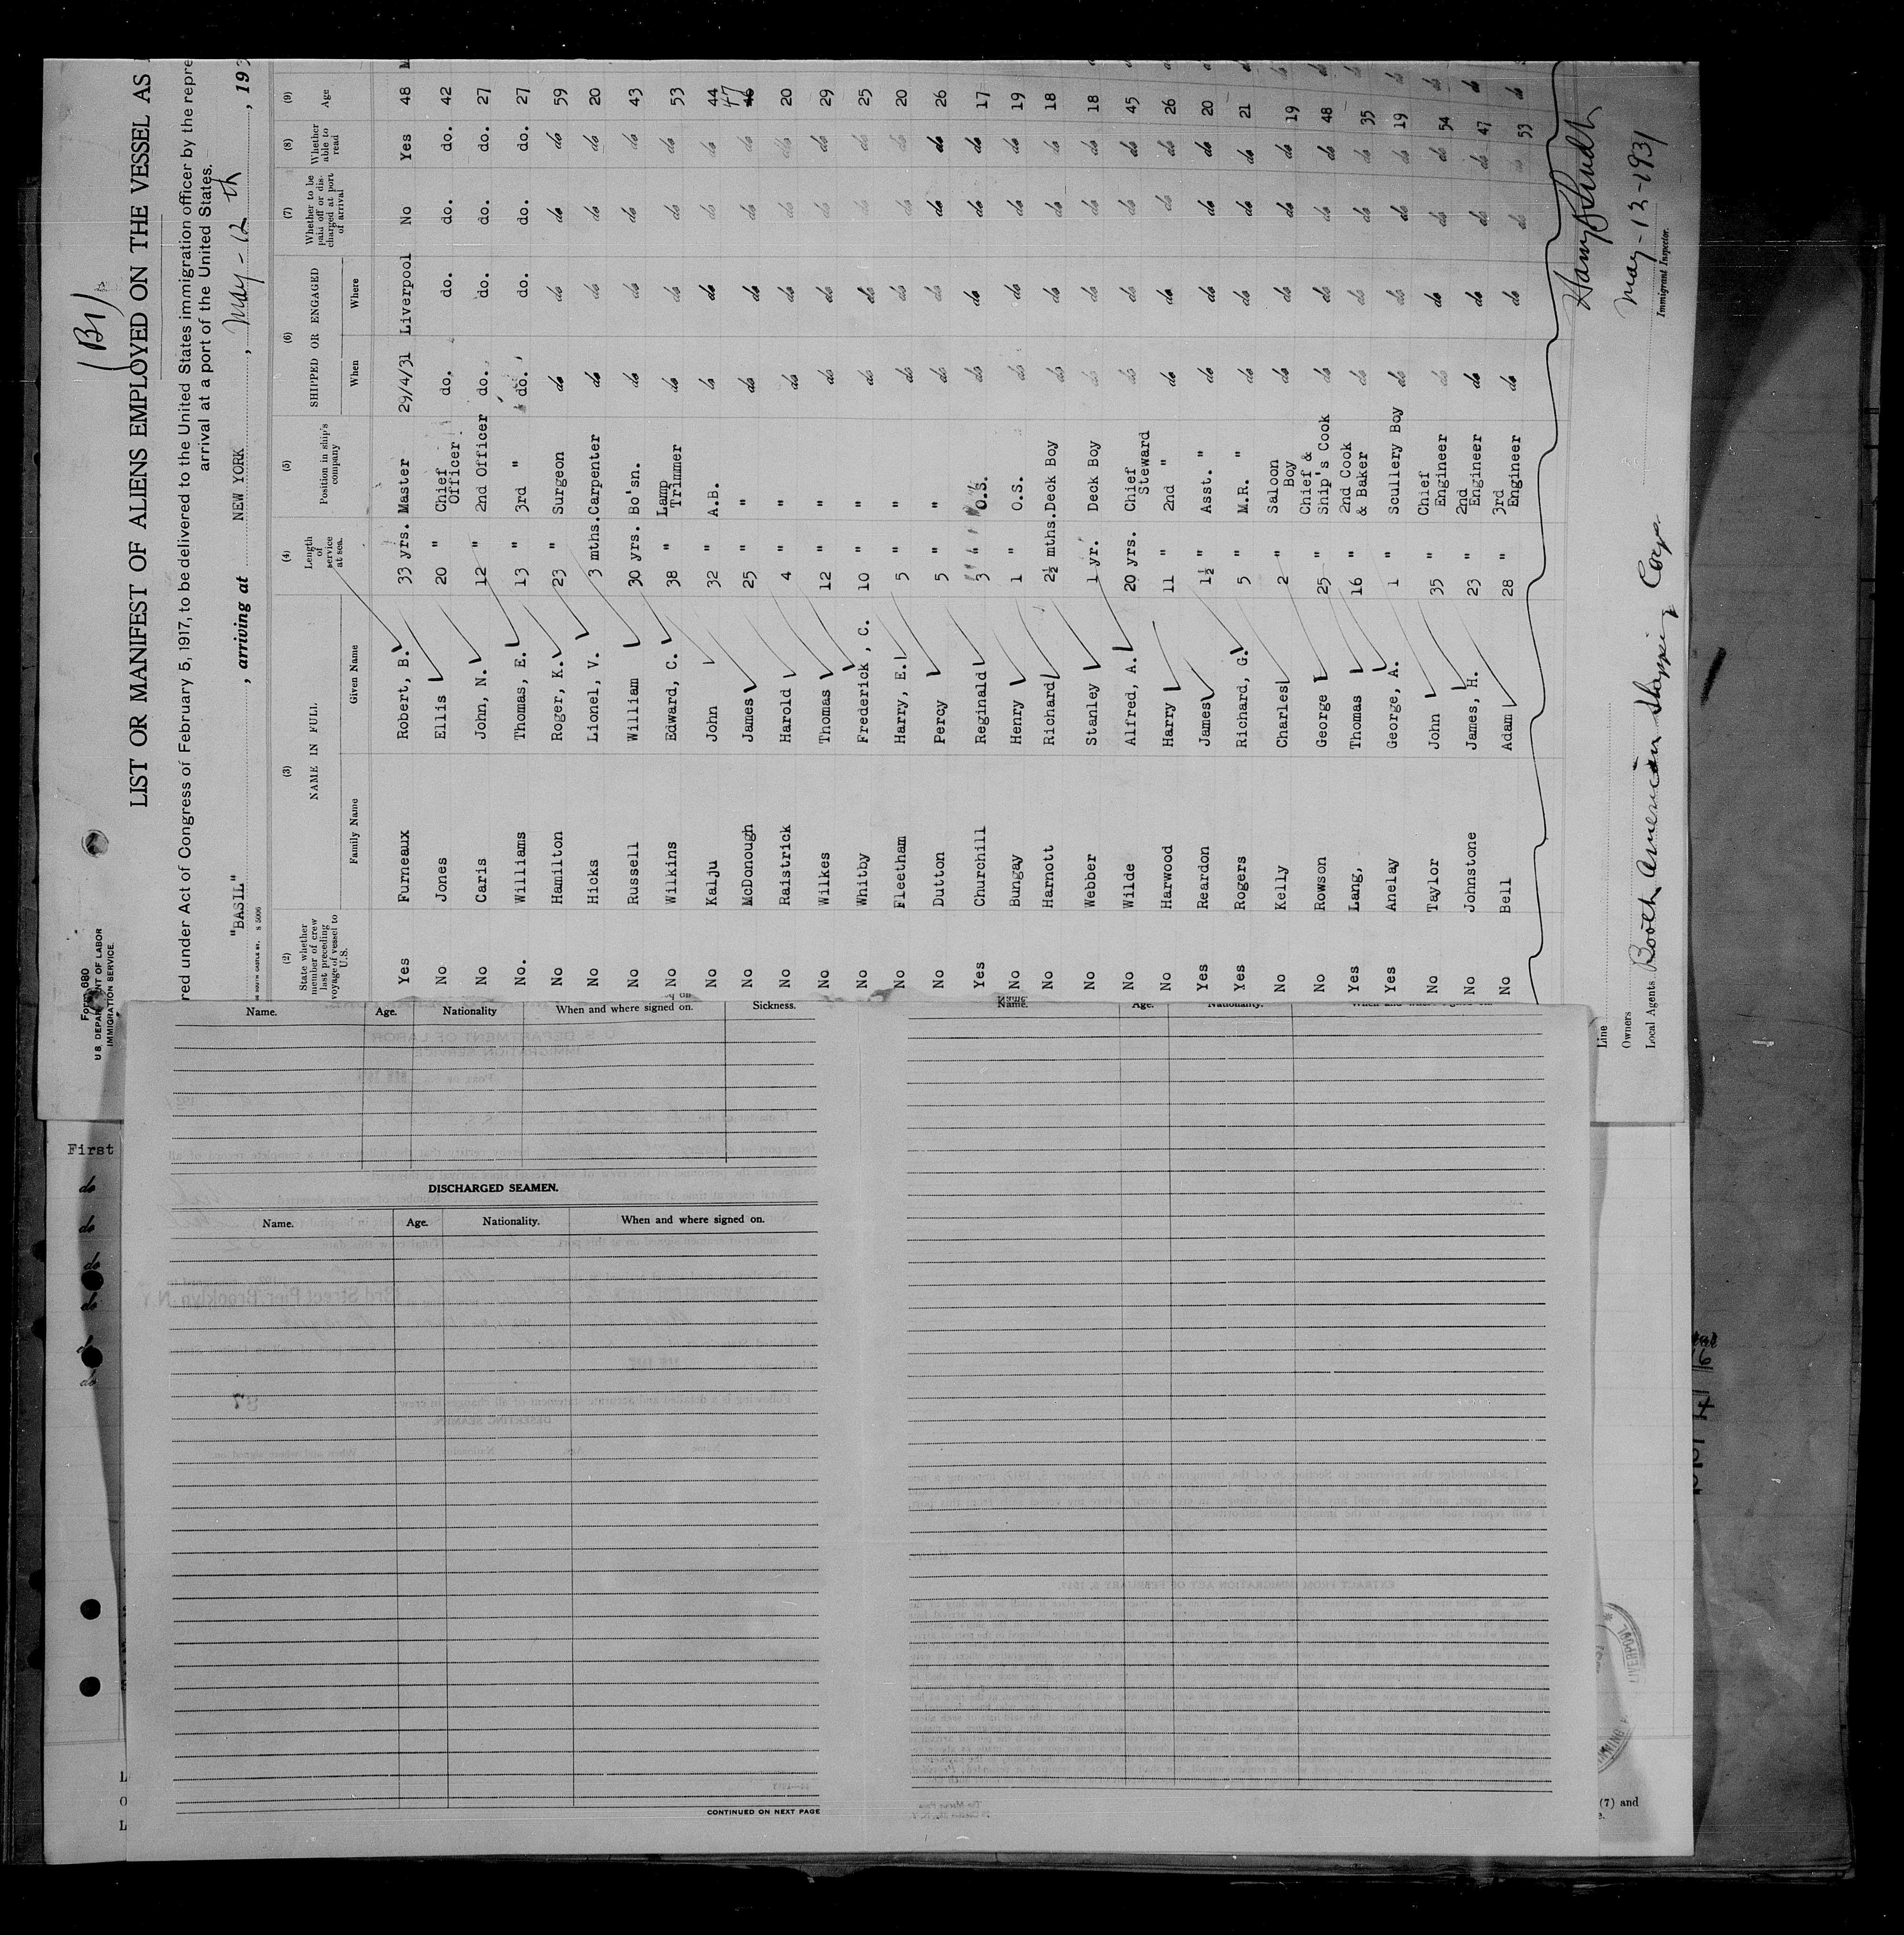 (B1)
Form 680
U.S. DEPARTMENT OF LABOR
IMMIGRATION SERVICE
LIST OR MANIFEST OF ALIENS EMPLOYED ON THE VESSEL AS
red under Act of Congress of February 5, 1917, to be delivered to the United States immigration officer by the repre
arrival at a port of the United States.
"BASIL" , arriving at NEW YORK , May - 12 th , 193
(2) (3) (4) (5) (6) (7) (8) (9)
State whether member of crew last preceding voyage of vessel to U.S. NAME IN FULL Length of service at sea. Position in ship's company SHIPPED OR ENGAGED Whether to be paid off or discharged at port of arrival Whether able to read Age
Family Name Given Name When Where
Yes Furneaux Robert, B. 33 yrs. Master 29/4/31 Liverpool No Yes 48 M
No Jones Ellis 20 " Chief Officer do. do. do. do. 42
No Caris John, N. 12 " 2nd Officer do. do. do. do. 27
No. Williams Thomas, E. 13 " 3rd " do. do. do. do. 27
No Hamilton Roger, K. 23 " Surgeon do do do do 59
No Hicks Lionel, V. 3 mths. Carpenter do do do do 20
No Russell William 30 yrs. Bo'sn. do do do do 43
No Wilkins Edward, C. 38 " Lamp Trimmer do do do do 53
No Kalju John 32 " A.B. do do do do 44
No McDonough James 25 " " do do do do 47
No Raistrick Harold 4 " " do do do do 20
No Wilkes Thomas 12 " " do do do do 29
No Whitby Frederick, C. 10 " " do do do do 25
No Fleetham Harry, E. 5 " " do do do do 20
No Dutton Percy 5 " " do do do do 26
Yes Churchill Reginald 3 " O.S. do do do do 17
No Bungay Henry 1 " O.S. do do do do 19
No Harnott Richard 2½ mths. Deck Boy do do do do 18
No Webber Stanley 1 yr. Deck Boy do do do do 18
No Wilde Alfred, A. 20 yrs. Chief Steward do do do do 45
No Harwood Harry 11 " 2nd " do do do do 26
Yes Reardon James 1½ " Asst. " do do do do 20
Yes Rogers Richard, G. 5 " M.R. " do do do do 21
No Kelly Charles 2 " Saloon Boy do do do do 19
No Rowson George 25 " Chief & Ship's Cook do do do do 48
Yes Lang, Thomas 16 " 2nd Cook & Baker do do do do 35
Yes Anelay George, A. 1 " Scullery Boy do do do do 19
No Taylor John 35 " Chief Engineer do do do do 54
No Johnstone James, H. 23 " 2nd Engineer do do do do 47
No Bell Adam 28 " 3rd Engineer do do do do 53
May - 12 - 1931
Immigrant Inspector.
Line
Owners
Local Agents Booth American Shipping Corp
First
do
do
do
do
do
do
Name. Age. Nationality When and where signed on. Sickness.
DISCHARGED SEAMEN.
Name. Age. Nationality. When and where signed on.
CONTINUED ON NEXT PAGE
Name. Age. Nationality.
LIVERPOOL
(7) and